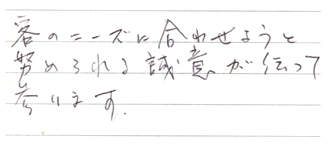 客のニーズに合わせようと
努められる誠意が伝って
参ります.